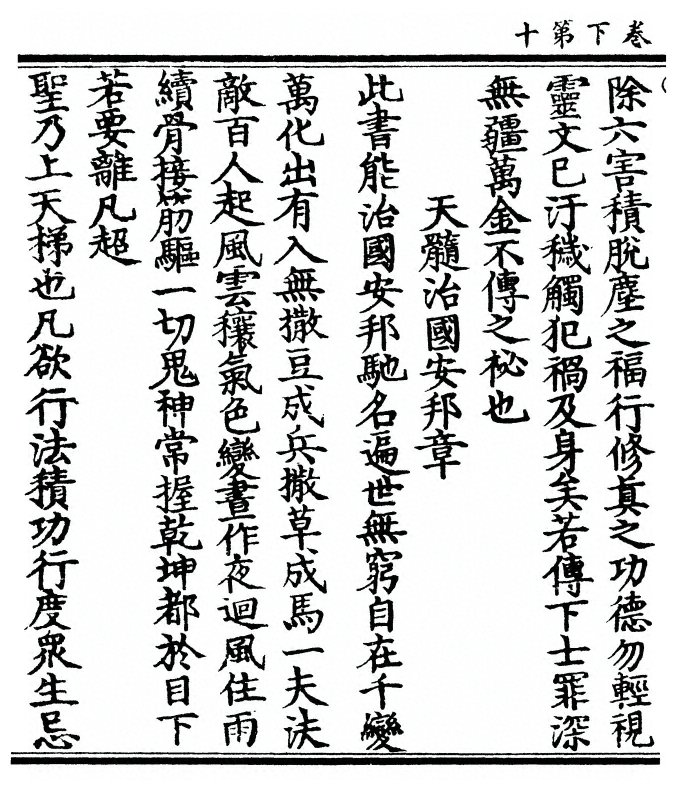 卷下第十
除六害積脫塵之福行修眞之功德勿輕視
靈文巳汙穢觸犯禍及身矣若傳下士罪深
無疆萬金不傳之秘也
天髓治國安邦章
此書能治國安邦馳名遍世無窮自在千變
萬化出有入無撒豆成兵撒草成馬一夫法
敵百人起風雲穰氣色變晝作夜迴風住雨
續骨接筋驅一切鬼神常握乾坤都於目下
若要離凡超
聖乃上天梯也凡欲行法積功行度衆生忌